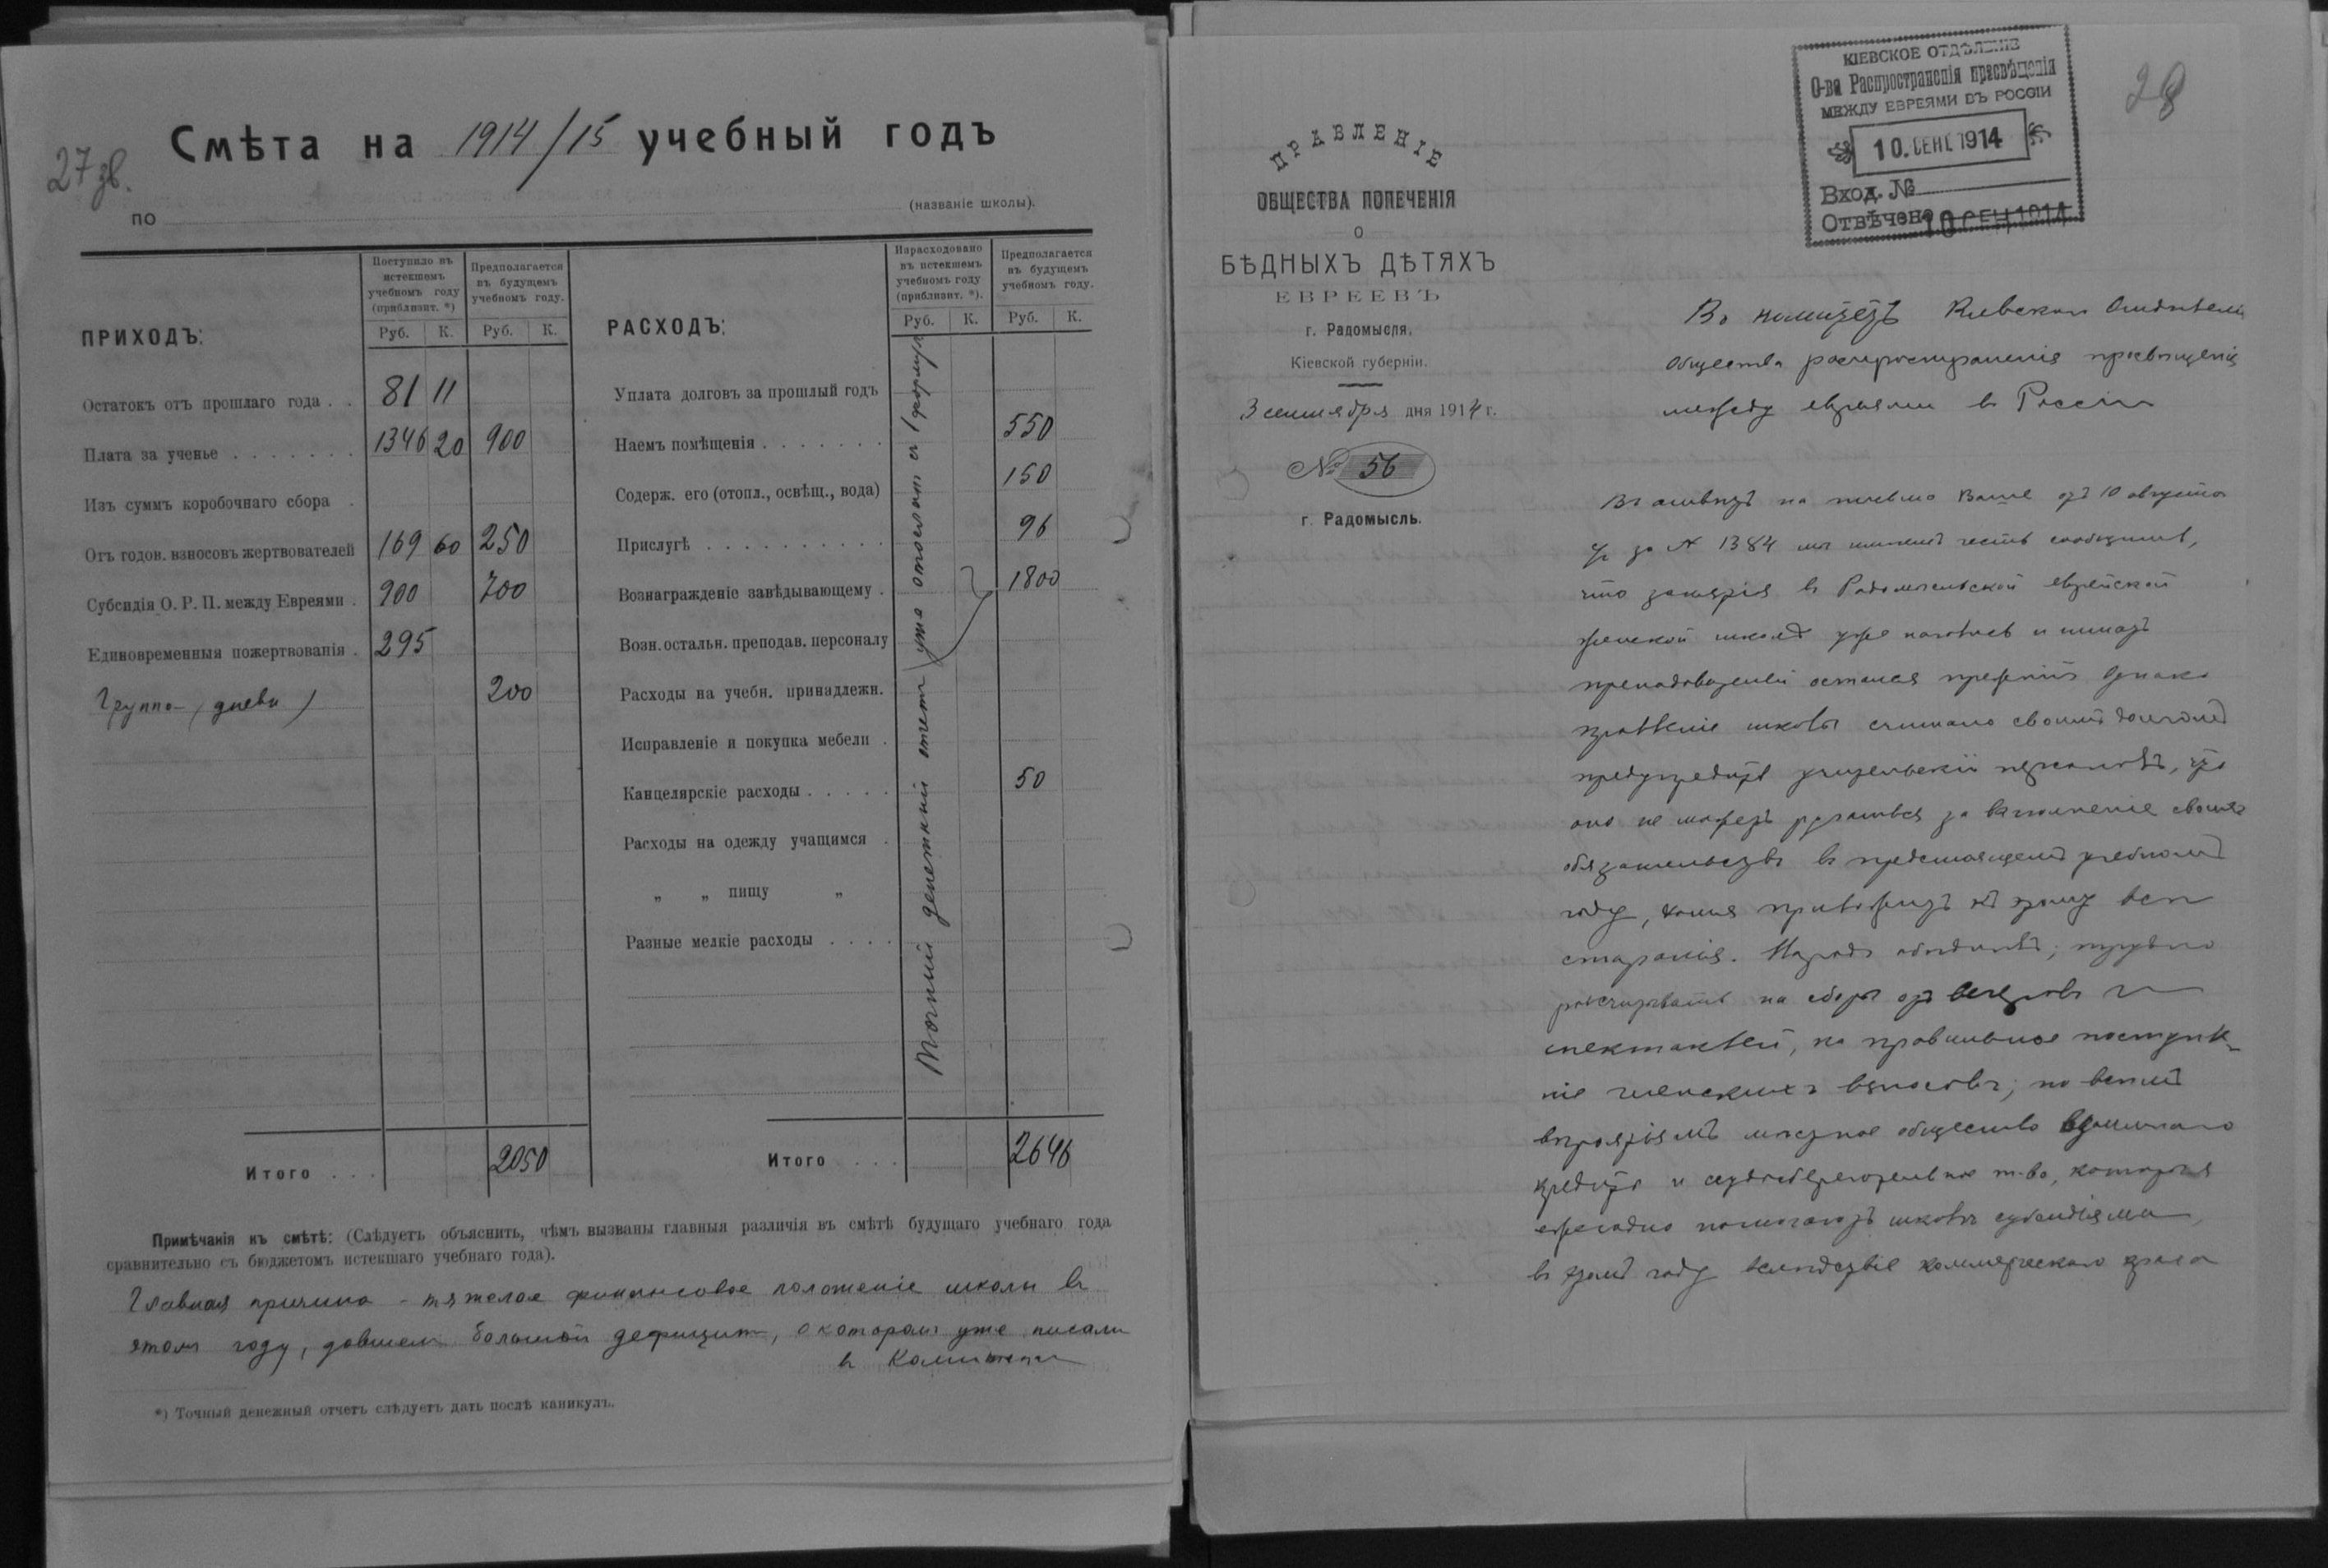 27 зв.
Смѣта на 1914/15 учебный годъ
по (названіе школы).
ПРИХОДЪ:
Поступило въ истекшемъ учебномъ году (приблизит. *)
Предполагается въ будущемъ учебномъ году.
Руб. К. Руб. К.
Остатокъ отъ прошлаго года . . 81 11
Плата за ученье . . . . . . . 1346 20 900
Изъ суммъ коробочнаго сбора .
Отъ годов. взносовъ жертвователей 169 60 250
Субсидія О. Р. П. между Евреями . 900 700
Единовременныя пожертвованія . 295
Группа 200
Итого . . . 2050
РАСХОДЪ:
Израсходовано въ истекшемъ учебномъ году (приблизит. *).
Предполагается въ будущемъ учебномъ году.
Руб. К. Руб. К.
Уплата долговъ за прошлый годъ
Наемъ помѣщенія . . . . . . . 550
Содерж. его (отопл., освѣщ., вода) 150
Прислугѣ . . . . . . . . . . 96
Вознагражденіе завѣдывающему . 1800
Возн. остальн. преподав. персоналу
Расходы на учебн. принадлежн.
Исправленіе и покупка мебели .
Канцелярскіе расходы . . . . . 50
Расходы на одежду учащимся .
„ „ пищу „
Разные мелкіе расходы . . . .
Итого . . . 2646
Точный денежный отчет уже отослан
Примѣчанія къ смѣтѣ: (Слѣдуетъ объяснить, чѣмъ вызваны главныя различія въ смѣтѣ будущаго учебнаго года
сравнительно съ бюджетомъ истекшаго учебнаго года).
Главная причина - тяжелое финансовое положеніе школы въ
этом году, давшем большой дефицит, о котором уже писали
в Комитет
*) Точный денежный отчетъ слѣдуетъ дать послѣ каникулъ.
28
КІЕВСКОЕ ОТДѢЛЕНІЕ
О-ва Распространенія просвѣщенія
МЕЖДУ ЕВРЕЯМИ ВЪ РОССІИ
10. СЕН. 1914
Вход. №
Отвѣчено 10 СЕН 1914
ПРАВЛЕНІЕ
ОБЩЕСТВА ПОПЕЧЕНІЯ
О
БѢДНЫХЪ ДѢТЯХЪ
ЕВРЕЕВЪ
г. Радомысля,
Кіевской губерніи.
3 сентября дня 1914 г.
№ 56
г. Радомысль.
Въ комитетъ Кіевскаго Отдѣленія
Общества распространенія просвѣщенія
между евреями в Россіи
Въ отвѣтъ на письмо Ваше отъ 10 августа
за № 1384 мы имѣемъ честь сообщить,
что занятія в Радомысльской еврейской
женской школѣ уже начались и штатъ
преподавателей остался прежній. Однако
правленіе школы считало своимъ долгомъ
предупредить учительскій персоналъ, что
оно не можетъ ручаться за выполненіе своихъ
обязательствъ в предстоящемъ учебномъ
году, хотя приложитъ къ этому всѣ
старанія. Народъ обѣднѣлъ; трудно
расчитывать на сборы отъ вечеровъ и
спектаклей, на правильное поступле-
ніе членскихъ взносовъ; по всѣмъ
вѣроятіямъ мѣстное общество взаимнаго
кредита и ссудосберегательное т-во, которыя
ежегодно помогаютъ школѣ субсидіями,
в этомъ году вслѣдствіе коммерческаго краха